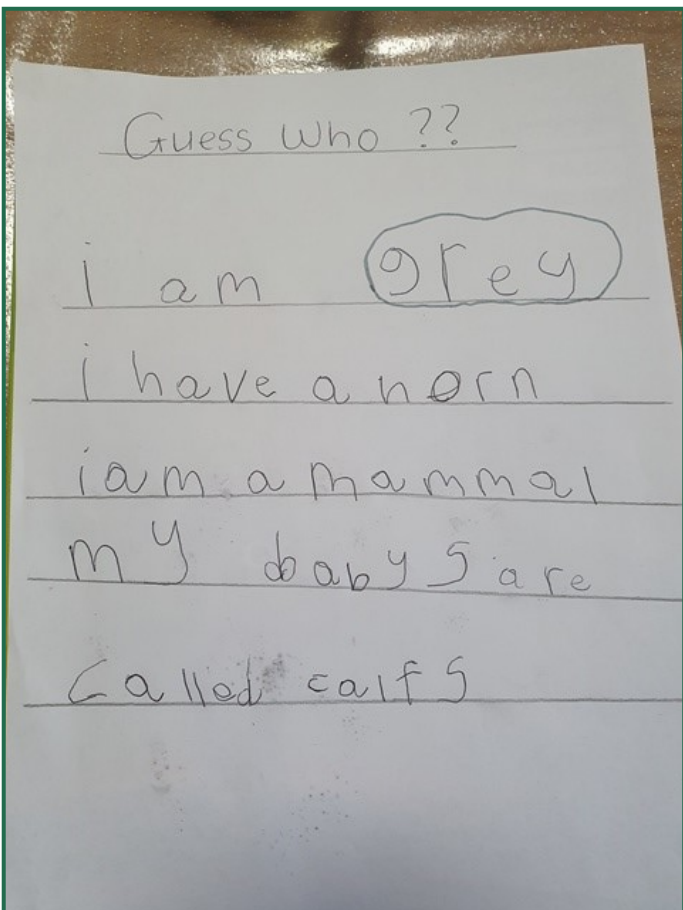 Guess Who ??
i am grey
i have a horn
i am a mammal
my babys are
called calfs